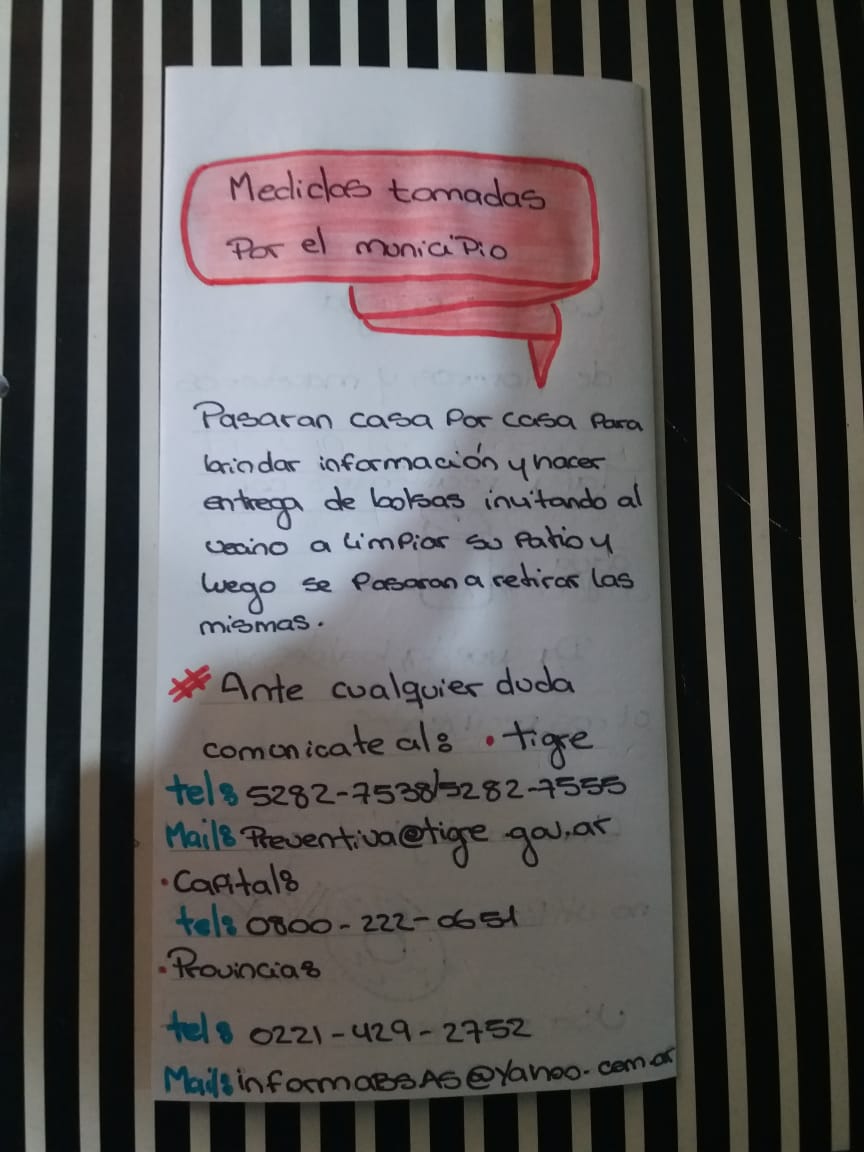 Medidas tomadas
Por el municiPio
Pasaran casa Por casa Para
brindar información y hacer
entrega de bolsas invitando al
vecino a LimPiar su Patio y
luego se Pasaran a retirar las
mismas.
# Ante cualquier duda
comunicate al: • tigre
tel: 5282-7538/5282-7555
Mail: Preventiva@tigre.gov.ar
• CaPital:
tel: 0800-222-0651
• Provincia:
tel: 0221-429-2752
Mail: informaBSAS@Yahoo.com.ar